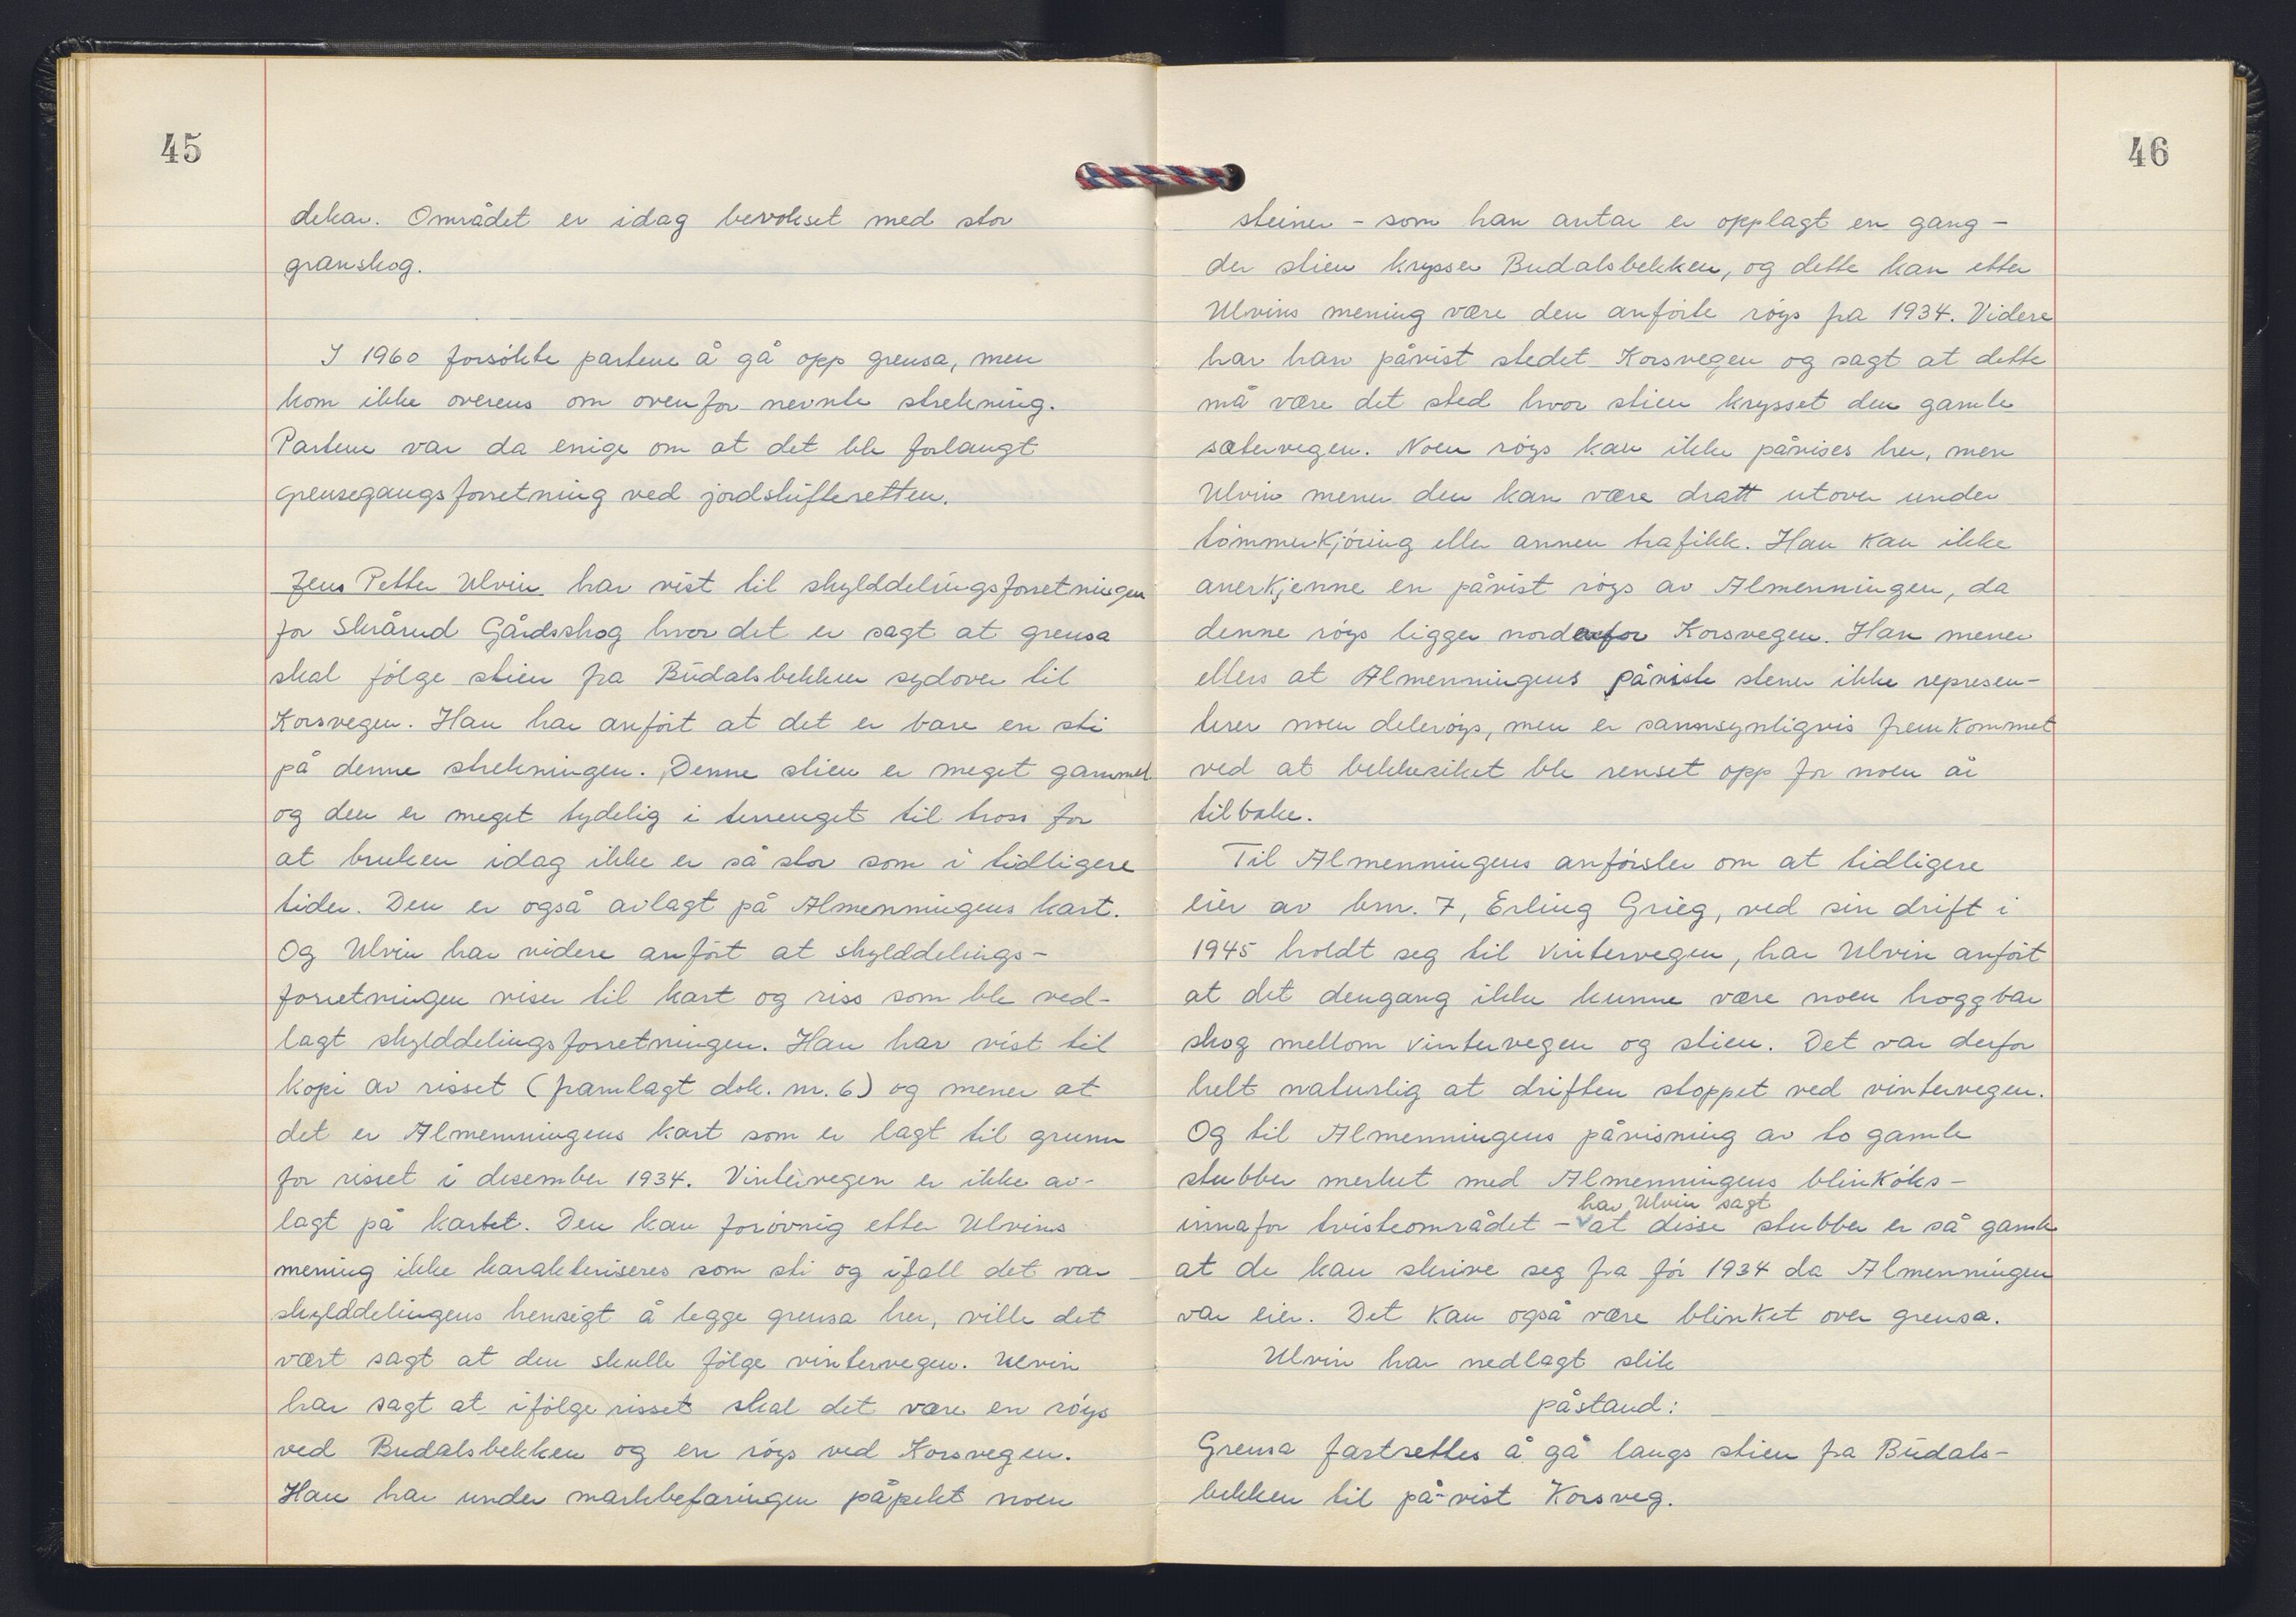 45
dekar. Området er idag bevokset med stor
granskog.
I 1960 forsökte partene å gå opp grensa, men
kom ikke overens om ovenfor nevnte strekning.
Partene var da enige om at det ble forlangt
grensegangsforretning ved jordskifteretten.
Jens Petter Ulvin har vist til skylddelingsforretningen
for Skrårud Gårdsskog hvor det er sagt at grensa
skal fölge stien fra Budalsbekken sydover til
Korsvegen. Han har anfört at det er bare en sti
på denne strekningen. Denne stien er meget gammel
og den er meget tydelig i terrenget til tross for
at bruken idag ikke er så stor som i tidligere
tider. Den er også avlagt på Almenningens kart.
Og Ulvin har videre anfört at skylddelings-
forretningen viser til kart og riss som ble ved-
lagt skylddelingsforretningen. Han har vist til
kopi av risset (framlagt dok. nr. 6) og mener at
det er Almenningens kart som er lagt til grunn
for risset i desember 1934. Vintervegen er ikke av-
lagt på kartet. Den kan forövrig etter Ulvins
mening ikke karakteriseres som sti og ifall det var
skylddelingens hensigt å legge grensa her, ville det
vært sagt at den skulle fölge vintervegen. Ulvin
har sagt at ifölge risset skal det være en röys
ved Budalsbekken og en röys ved Korsvegen.
Han har under markbefaringen påpekt noen
46
steiner - som han antar er opplagt en gang -
der stien krysser Budalsbekken, og dette kan etter
Ulvins mening være den anförte röys fra 1934. Videre
har han påvist stedet Korsvegen og sagt at dette
må være det sted hvor stien krysset den gamle
sætervegen. Noen röys kan ikke påvises her, men
Ulvin mener den kan være dratt utover under
tömmerkjöring eller annen trafikk. Han kan ikke
anerkjenne en påvist röys av Almenningen, da
denne röys ligger nordenfor Korsvegen. Han mener
ellers at Almenningens påviste stener ikke represen-
terer noen deleröys, men er sannsynligvis fremkommet
ved at bekkesiket ble renset opp for noen år
tilbake.
Til Almenningens anförsler om at tidligere
eier av bnr. 7, Erling Grieg, ved sin drift i
1945 holdt seg til vintervegen, har Ulvin anfört
at det dengang ikke kunne være noen hoggbar
skog mellom vintervegen og stien. Det var derfor
helt naturlig at driften stoppet ved vintervegen.
Og til Almenningens påvisning av to gamle
stubber merket med Almenningens blinköks -
har Ulvin sagt
innafor tvisteområdet - at disse stubber er så gamle
at de kan skrive seg fra för 1934 da Almenningen
var eier. Det kan også være blinket over grensa.
Ulvin har nedlagt slik
påstand:
Grensa fastsettes å gå langs stien fra Budals-
bekken til på-vist Korsveg.